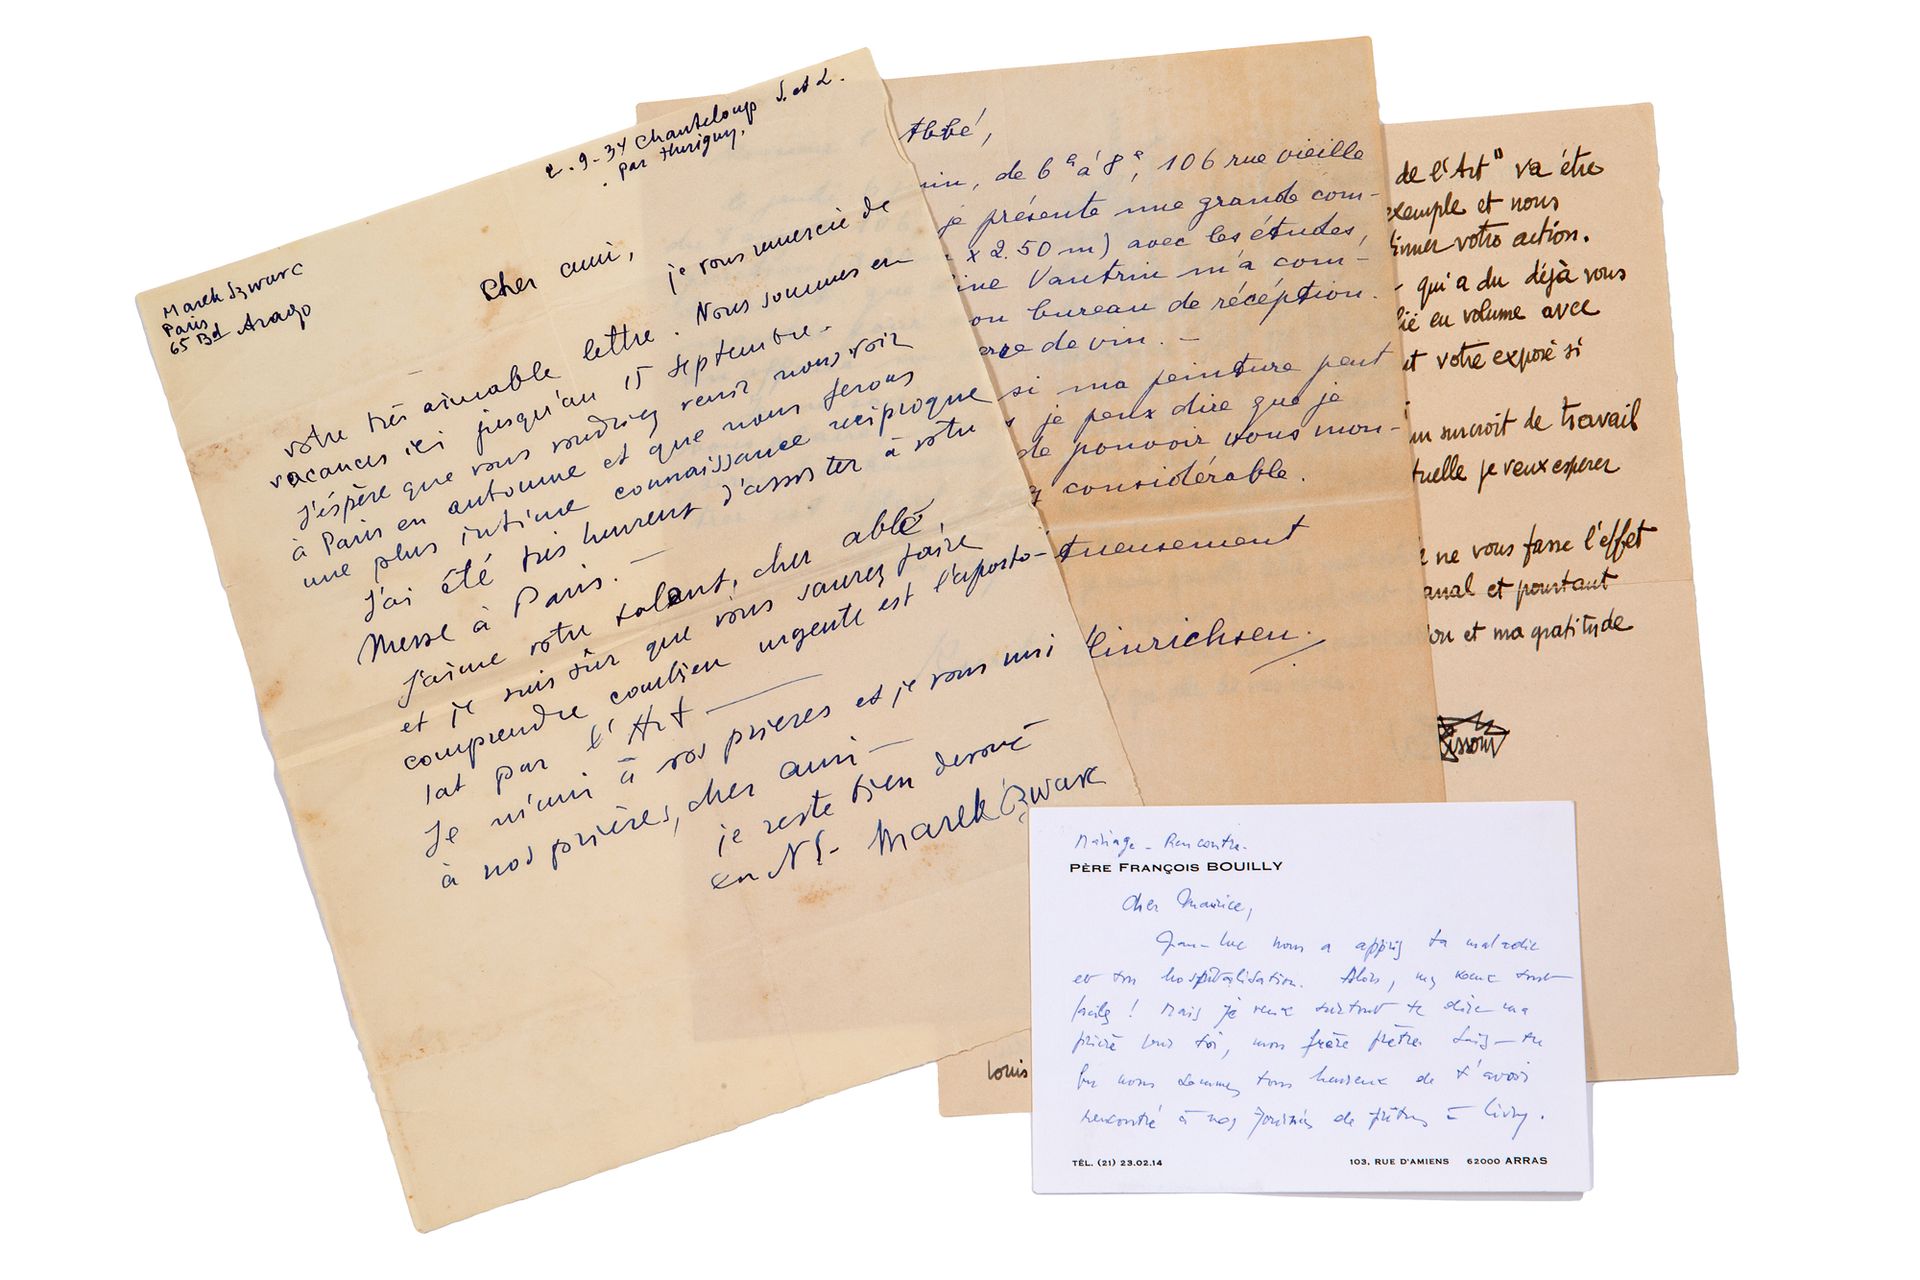 2.9-34 Chanteloup S. et L.
par Thurigny.
Marek Szwarc
Paris
65 Bd Arago
Cher ami,
je vous remercie de
votre très aimable lettre. Nous sommes en
vacances ici jusqu'au 15 Septembre.
J'éspère que vous voudriez venir nous voir
à Paris en automne et que nous ferons
une plus intime connaissance reciproque
J'ai été très heureux d'assister à votre
Messe à Paris. —
J'aime votre talent, cher abbé,
et je suis sûr que vous saurez faire
comprendre combien urgente est l'aposto-
lat par l'Art —
Je m'uni à vos prieres et je vous uni
à nos prières, cher ami —
je reste bien devoué
en N.S.
Marek Szwarc
Abbé,
de 6 à 8, 106 rue vieille
je présente une grande com-
x 2.50 m) avec les études,
Vautrin m'a com-
bureau de récéption.
de vin. —
si ma peinture peut
je peux dire que je
de pouvoir vous mon-
considérable.
tueusement
Hinrichsen.
de l'Art" va être
exemple et nous
votre action.
qui a du déjà vous
en volume avec
votre exposé si
surcroit de travail
tuelle je veux esperer
ne vous fasse l'effet
anal et pourtant
et ma gratitude
louis
Mariage - Rencontre.
PÈRE FRANÇOIS BOUILLY
Cher Maurice,
Jean-Luc nous a appris ta maladie
et ton hospitalisation. Alors, mes vœux sont
faciles ! Mais je veux surtout te dire ma
prière pour toi, mon frère prêtre. Sais-tu
que nous sommes tous heureux de t'avoir
rencontré à nos journées de prêtres à Livry.
TÉL. (21) 23.02.14
103, RUE D'AMIENS 62000 ARRAS